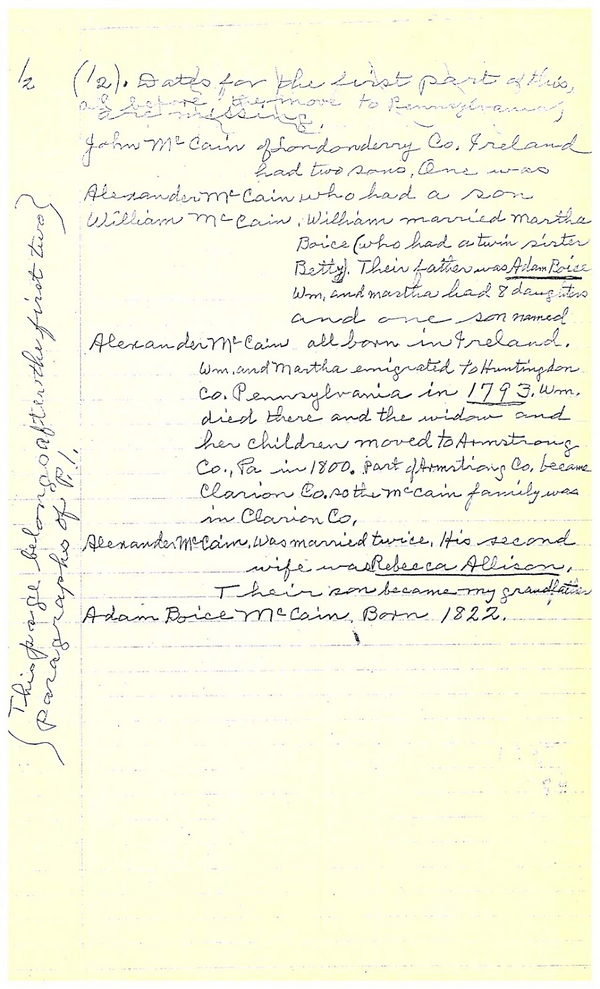 1/2
(1/2). Dates for the first part of this,
as before, the move to Pennsylvania,
are missing.
John McCain of Londonderry Co. Ireland
had two sons. One was
Alexander McCain who had a son
William McCain. William married Martha
Boice (who had a twin sister
Betty). Their father was Adam Boice
Wm. and Martha had 8 daughters
and one son named
Alexander McCain all born in Ireland.
Wm. and Martha emigrated to Huntingdon
Co. Pennsylvania in 1793. Wm.
died there and the widow and
her children moved to Armstrong
Co., Pa in 1800. Part of Armstrong Co. became
Clarion Co. so the McCain family was
in Clarion Co.
Alexander McCain. Was married twice. His second
wife was Rebecca Allison.
Their son became my grandfather
Adam Boice McCain. Born 1822.
(This page belongs after the first two)
paragraphs of P.1.